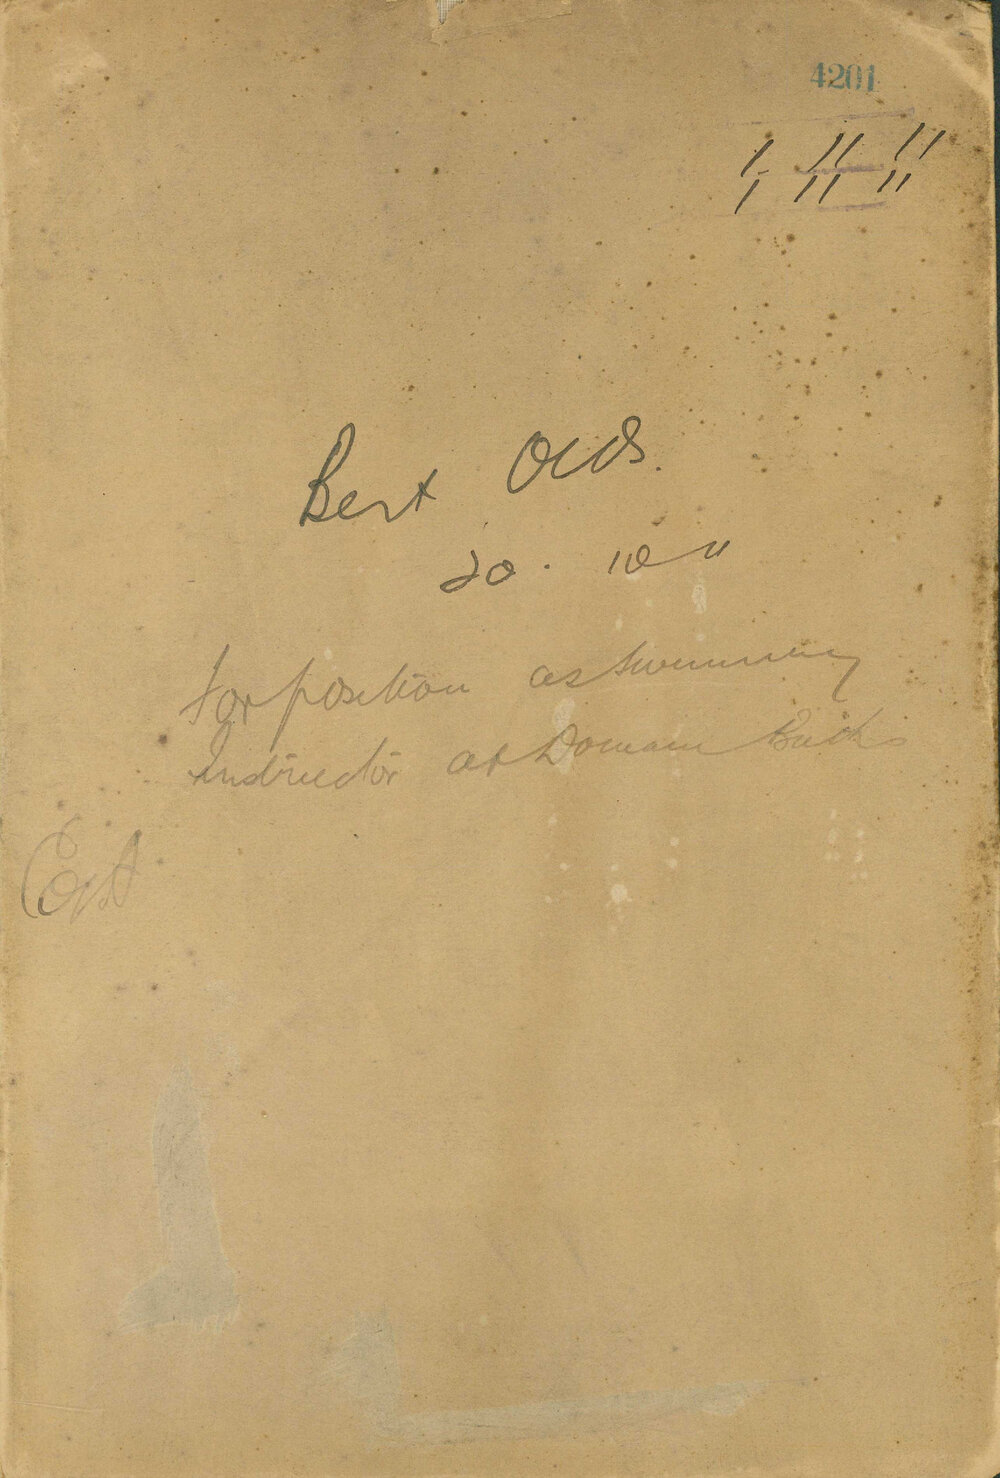 4201
/ // //
/ // //
Bert Olds.
20. 10
For position as Swimming
Instructor at Domain Baths